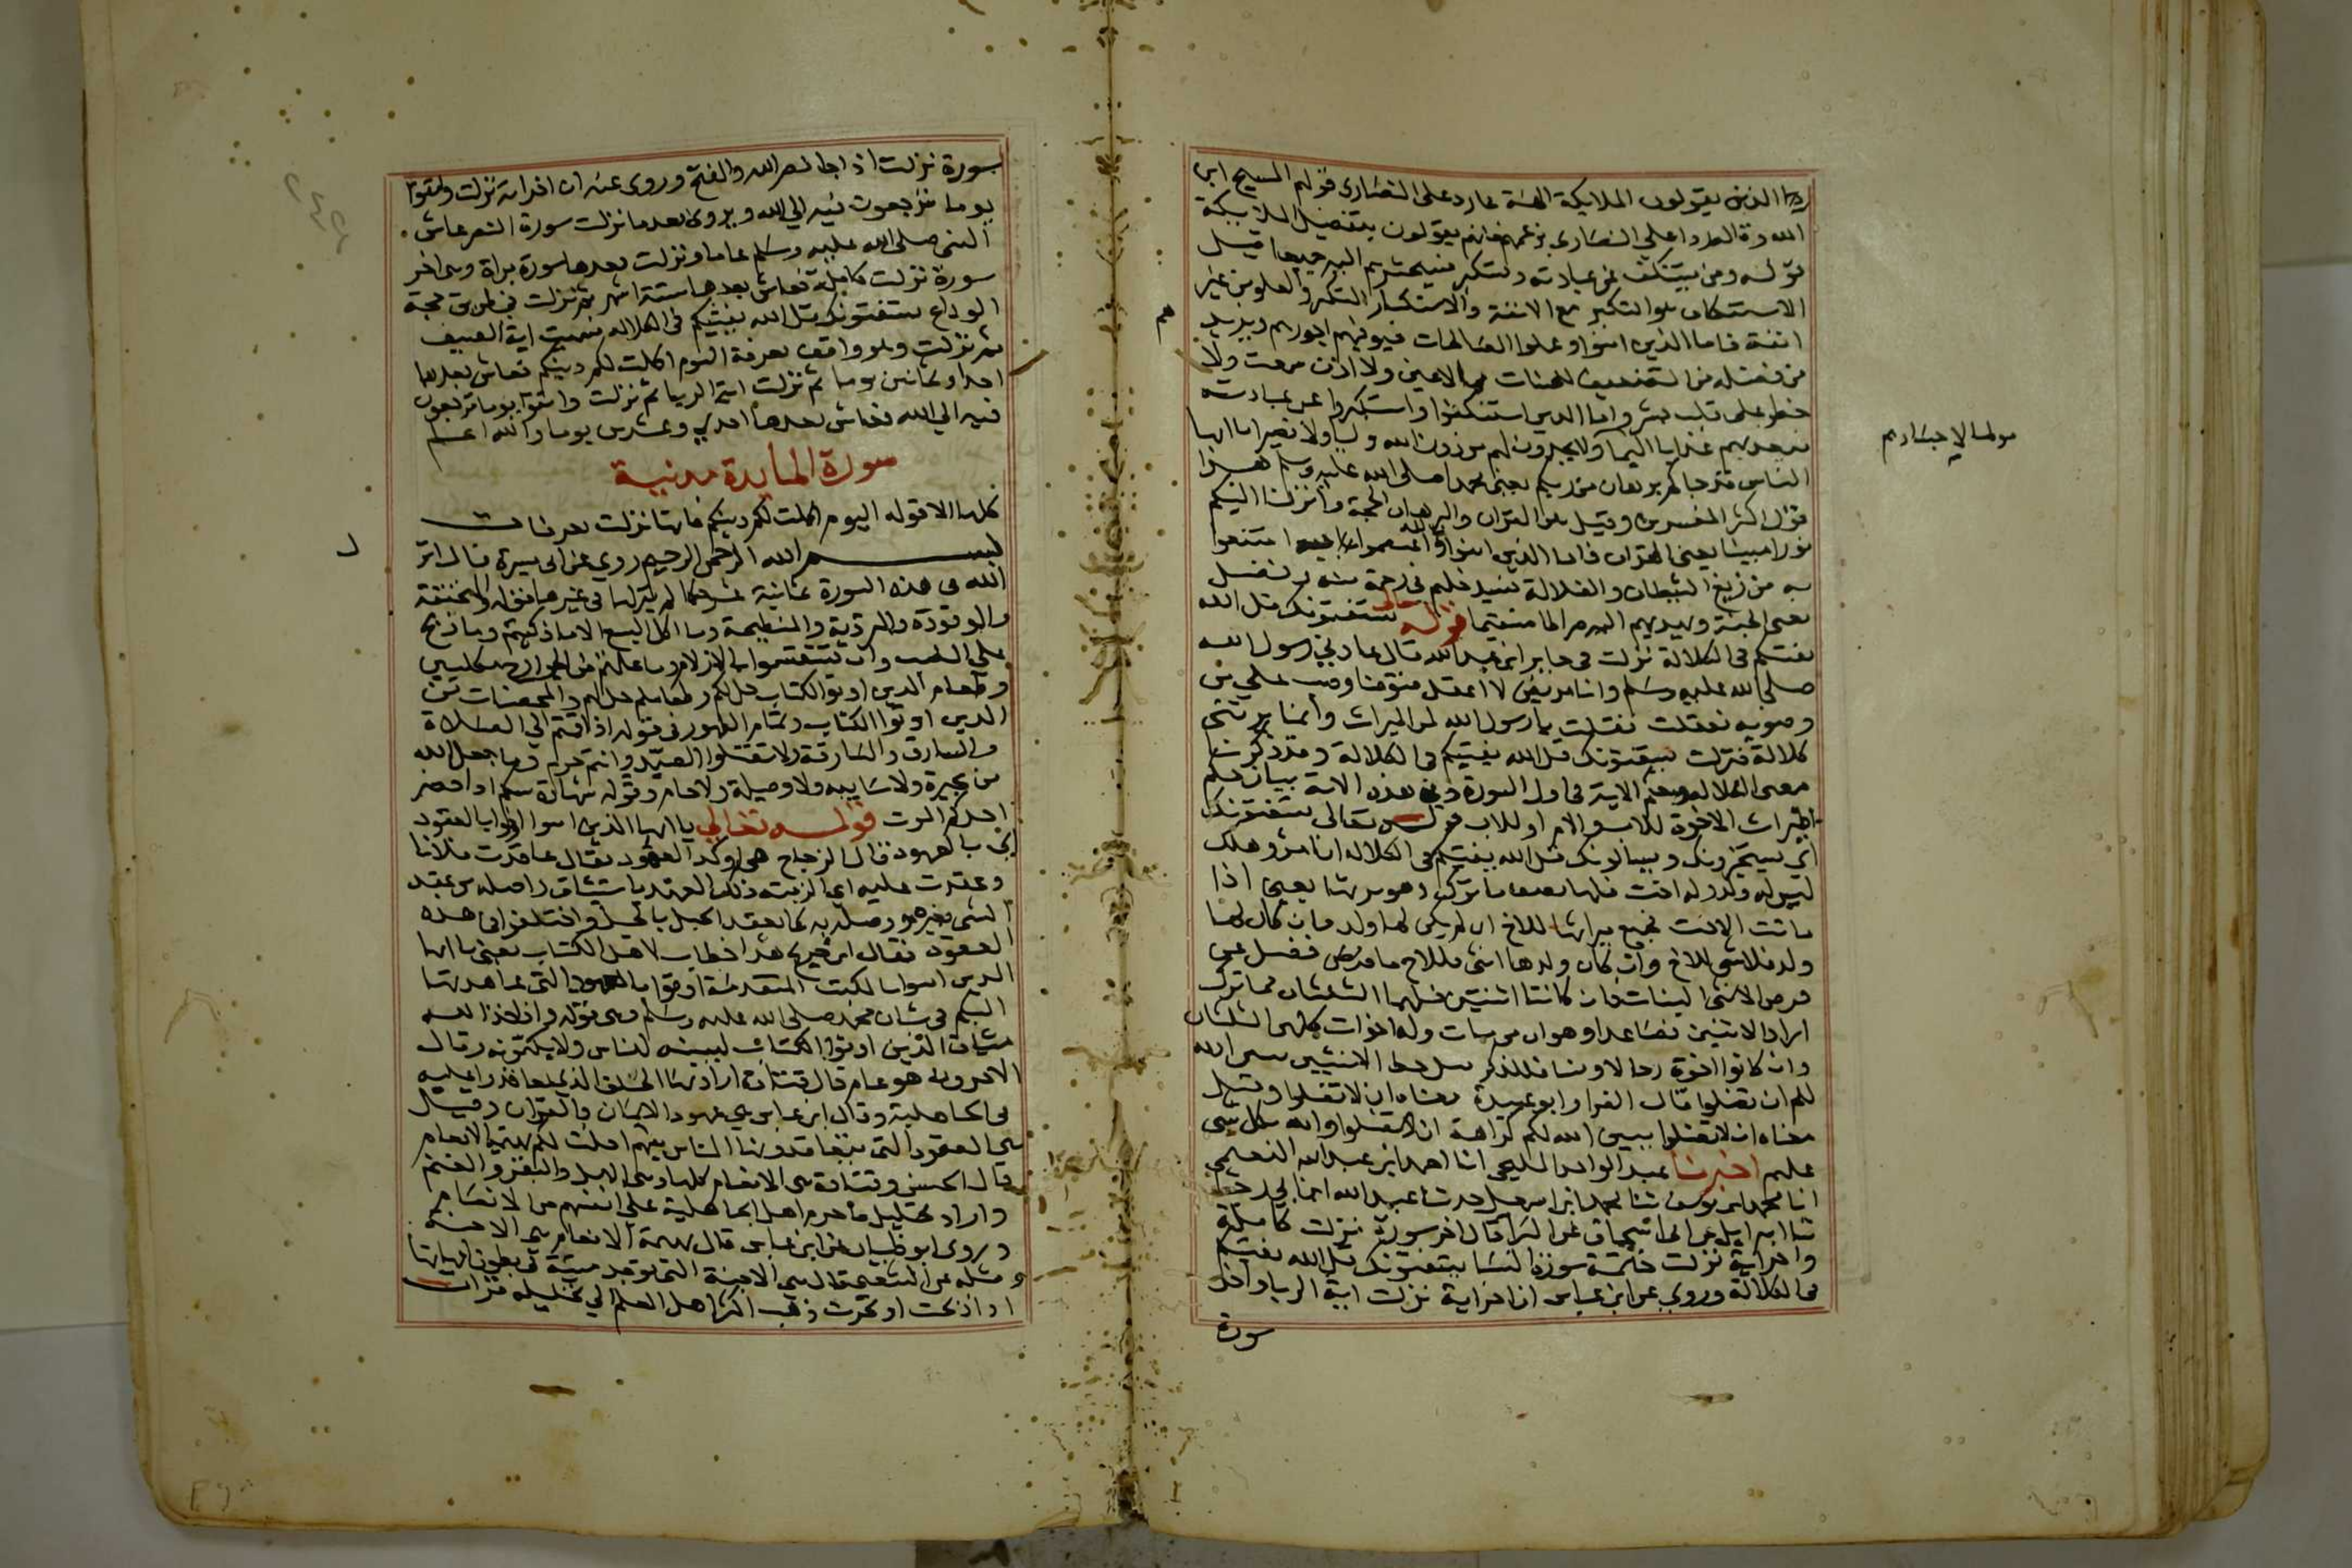 الذين يقولون الملايكة الهة كما رد على النصارى قولهم المسيح ابن
الله وقال ردا على النصارى بزعمهم فانهم يقولون بتفضيل الملايكة
قوله ومن يستنكف عن عبادته ويستكبر فسيحشرهم اليه جميعا قيل
الاستنكاف هو التكبر مع الانفة والاستكبار التكبر والعلو من غير
انفة فاما الذين امنوا وعملوا الصالحات فيوفيهم اجورهم ويزيدهم
من فضله من التضعيف للحسنات مالا عين ولا اذن سمعت ولا
خطر على قلب بشر واما الذين استنكفوا واستكبروا عن عبادته
فيعذبهم عذابا اليما ولا يجدون لهم من دون الله وليا ولا نصيرا ياايها
الناس قد جاكم برهان من ربكم يعني محمدا صلى الله عليه وسلم هذا
قول اكثر المفسرين وقيل هو القران والبرهان الحجة وانزلنا اليكم
نورا مبينا يعني القران فاما الذين امنوا بالله واعتصموا به امتنعوا
به من زيغ الشيطان والضلالة فسيدخلهم في رحمة منه وفضل
يعني الجنة ويهديهم اليه صراطا مستقيما قوله يستفتونك قل الله
يفتيكم في الكلالة نزلت في جابر ابن عبدالله قال عادني رسول الله
صلى الله عليه وسلم وانا مريض لا اعقل فتوضا وصب علي من
وضويه فعقلت فقلت يا رسول الله لمن الميراث وانما يرثني
كلالة فنزلت يستفتونك قل الله يفتيكم في الكلالة وقد ذكرنا
معنى الكلالة وحكم الاية في اول السورة وفي هذه الاية بيان حكم
ميراث الاخوة للاب والام او للاب قوله تعالى يستفتونك
اي يستخبرونك ويسالونك قل الله يفتيكم في الكلالة ان امرؤ هلك
ليس له ولد وله اخت فلها نصف ما ترك وهو يرثها يعني اذا
ماتت الاخت فجميع ميراثها للاخ ان لم يكن لها ولد فان كان لها
ولد فلا شي للاخ وان كان ولدها انثى فللاخ ما فضل عن
فرض الانثى البنات فان كانتا اثنتين فلهما الثلثان مما ترك
اراد الاثنتين فصاعدا وهو ان من مات وله اخوات فلهن الثلثان
وان كانوا اخوة رجالا ونسا فللذكر مثل حظ الانثيين يبين الله
لكم ان تضلوا قال الفرا وابو عبيدة معناه ان لا تضلوا وقيل
معناه ان لا تضلوا يبين الله لكم كراهة ان تضلوا والله بكل شي
عليم اخبرنا عبد الواحد المليحي انا احمد ابن عبد الله النعيمي
انا محمد ابن يوسف ثنا محمد ابن اسمعيل حدثنا عبد الله ابن رجا
ثنا اسراييل عن ابي اسحاق عن البرا قال اخر سورة نزلت كاملة
واخر اية نزلت خاتمة سورة النسا يستفتونك قل الله يفتيكم
في الكلالة وروي عن ابن عباس ان اخر اية نزلت اية الربا واخر
سورة
سورة نزلت اذا جا نصر الله والفتح وروى عنه ان اخر اية نزلت واتقوا
يوما ترجعون فيه الى الله ويروى بعد ما نزلت سورة النصر عاش
النبي صلى الله عليه وسلم عاما ونزلت بعدها سورة براة وهي اخر
سورة نزلت كاملة فعاش بعدها ستة اشهر ثم نزلت في طريق حجة
الوداع يستفتونك قل الله يفتيكم في الكلالة فسميت اية الصيف
ثم نزلت وهو واقف بعرفة اليوم اكملت لكم دينكم فعاش بعدها
احدا وثمانين يوما ثم نزلت اية الربا ثم نزلت واتقوا يوما ترجعون
فيه الى الله فعاش بعدها احدي وعشرين يوما والله اعلم
سورة المايدة مدنية
كلها الا قوله اليوم اكملت لكم دينكم فانها نزلت بعرفات
بسم الله الرحمن الرحيم روي عن ابي ميسرة قال انزل
الله في هذه السورة ثمانية عشر حكما لم ينزلها في غيرها قوله والمنخنقة
والموقوذة والمتردية والنطيحة وما اكل السبع الا ما ذكيتم وما ذبح
على النصب وان تستقسموا بالازلام وما علمتم من الجوارح مكلبين
وطعام الذين اوتوا الكتاب حل لكم وطعامكم حل لهم والمحصنات من
الذين اوتوا الكتاب وتمام الطهور في قوله اذا قمتم الى الصلاة
والسارق والسارقة ولا تقتلوا الصيد وانتم حرم وما جعل الله
من بحيرة ولا سايبة ولا وصيلة ولا حام وقوله شهادة بينكم اذا حضر
احدكم الموت قوله تعالى يا ايها الذين امنوا اوفوا بالعقود
اي بالعهود قال الزجاج هي اوكد العهود يقال عاقدت فلانا
وعقدت عليه اي الزمته ذلك العهد باستيثاق واصله من عقد
الشي بغيره وهو وصله به كما يعقد الحبل بالحبل واختلفوا في هذه
العقود فقال ابن جريج هذا خطاب لاهل الكتاب يعني يا ايها
الذين امنوا بالكتب المتقدمة اوفوا بالعهود التي عاهدتها
اليكم في شان محمد صلى الله عليه وسلم وهي قوله واذ اخذ الله
ميثاق الذين اوتوا الكتاب ليبينه للناس ولا يكتمونه وقال
الاخرون هو عام قال قتادة اراد بها الحلف الذي تعاقدوا عليه
في الجاهلية وقال ابن عباس هي عهود الايمان والقران وقيل
هي العقود التي يتعاقدونها الناس بينهم احلت لكم بهيمة الانعام
قال الحسن وقتادة هي الانعام كلها وهي الابل والبقر والغنم
واراد تحليل ما حرم اهل الجاهلية على انفسهم من الانعام
وروى ابو ظبيان عن ابن عباس قال بهيمة الانعام هي الاجنة
ومثله عن الشعبي قال هي الاجنة التي توجد ميتة في بطون امهاتها
اذا ذبحت او نحرت ذهب اكثر اهل العلم الى تحليله قرات